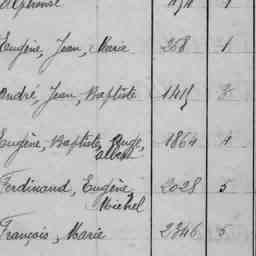 Alphonse 1
Eugène, Jean, Marie 268 1
André, Jean, Baptiste
Eugène, Baptiste, Ange, 1864 4
Albert
Ferdinand, Eugène 2028 5
Michel
François, Marie 2346 5